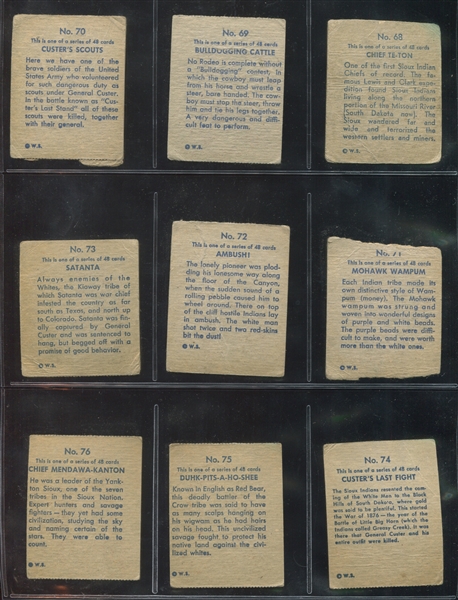 No. 70
This is one of a series of 48 cards
CUSTER'S SCOUTS
Here we have one of the
brave soldiers of the United
States Army who volunteered
for such dangerous duty as
scouts under General Custer.
In the battle known as "Cus-
ter's Last Stand" all of these
scouts were killed, together
with their general.
© W.S.
No. 69
This is one of a series of 48 cards
BULLDOGGING CATTLE
No Rodeo is complete without
a "Bulldogging" contest; in
which the cowboy must leap
from his horse and wrestle a
steer, bare handed. The cow-
boy must stop the steer, throw
him and tie his legs together.
A very dangerous and diffi-
cult feat to perform.
© W.S.
No. 68
This is one of a series of 48 cards
CHIEF TE-TON
One of the first Sioux Indian
Chiefs of record. The fa-
mous Lewis and Clark expe-
dition found Sioux Indians
living along the northern
portion of the Missouri River
(South Dakota now). The
Sioux wandered far and
wide and terrorized the
western settlers and miners.
© W.S.
No. 73
This is one of a series of 48 cards
SATANTA
Always enemies of the
Whites, the Kiaway tribe of
which Satanta was war chief
infested the country as far
south as Texas, and north up
to Colorado. Satanta was fin-
ally captured by General
Custer and was sentenced to
hang, but begged off with a
promise of good behavior.
© W.S.
No. 72
This is one of a series of 48 cards
AMBUSH!
The lonely pioneer was plod-
ding his lonesome way along
the floor of the Canyon,
when the sudden sound of a
rolling pebble caused him to
wheel around. There on top
of the cliff hostile Indians lay
in ambush. The white man
shot twice and two red-skins
bit the dust!
© W.S.
No. 71
This is one of a series of 48 cards
MOHAWK WAMPUM
Each Indian tribe made its
own distinctive style of Wam-
pum (money). The Mohawk
wampum was strung and
woven into wonderful designs
of purple and white beads.
The purple beads were diffi-
cult to make, and were worth
more than the white ones.
© W.S.
No. 76
This is one of a series of 48 cards
CHIEF MENDAWA-KANTON
He was a leader of the Yank-
ton Sioux, one of the seven
tribes in the Sioux Nation.
Expert hunters and savage
fighters — they yet had some
civilization, studying the sky
and naming certain of the
stars. They were able to
count.
© W.S.
No. 75
This is one of a series of 48 cards
DUHK-PITS-A-HO-SHEE
Known in English as Red Bear,
this deadly battler of the
Crow tribe was said to have
as many scalps hanging on
his wigwam as he had hairs
on his head. This uncivilized
savage fought to protect his
native land against the civi-
lized whites.
© W.S.
No. 74
This is one of a series of 48 cards
CUSTER'S LAST FIGHT
The Sioux Indians resented the com-
ing of the White Men to the Black
Hills of South Dakota, where gold
was said to be plentiful. This started
the War of 1876 — the year of the
Battle of Little Big Horn (which the
Indians called Greasy Creek). It was
there that General Custer and his
entire outfit were killed.
© W.S.